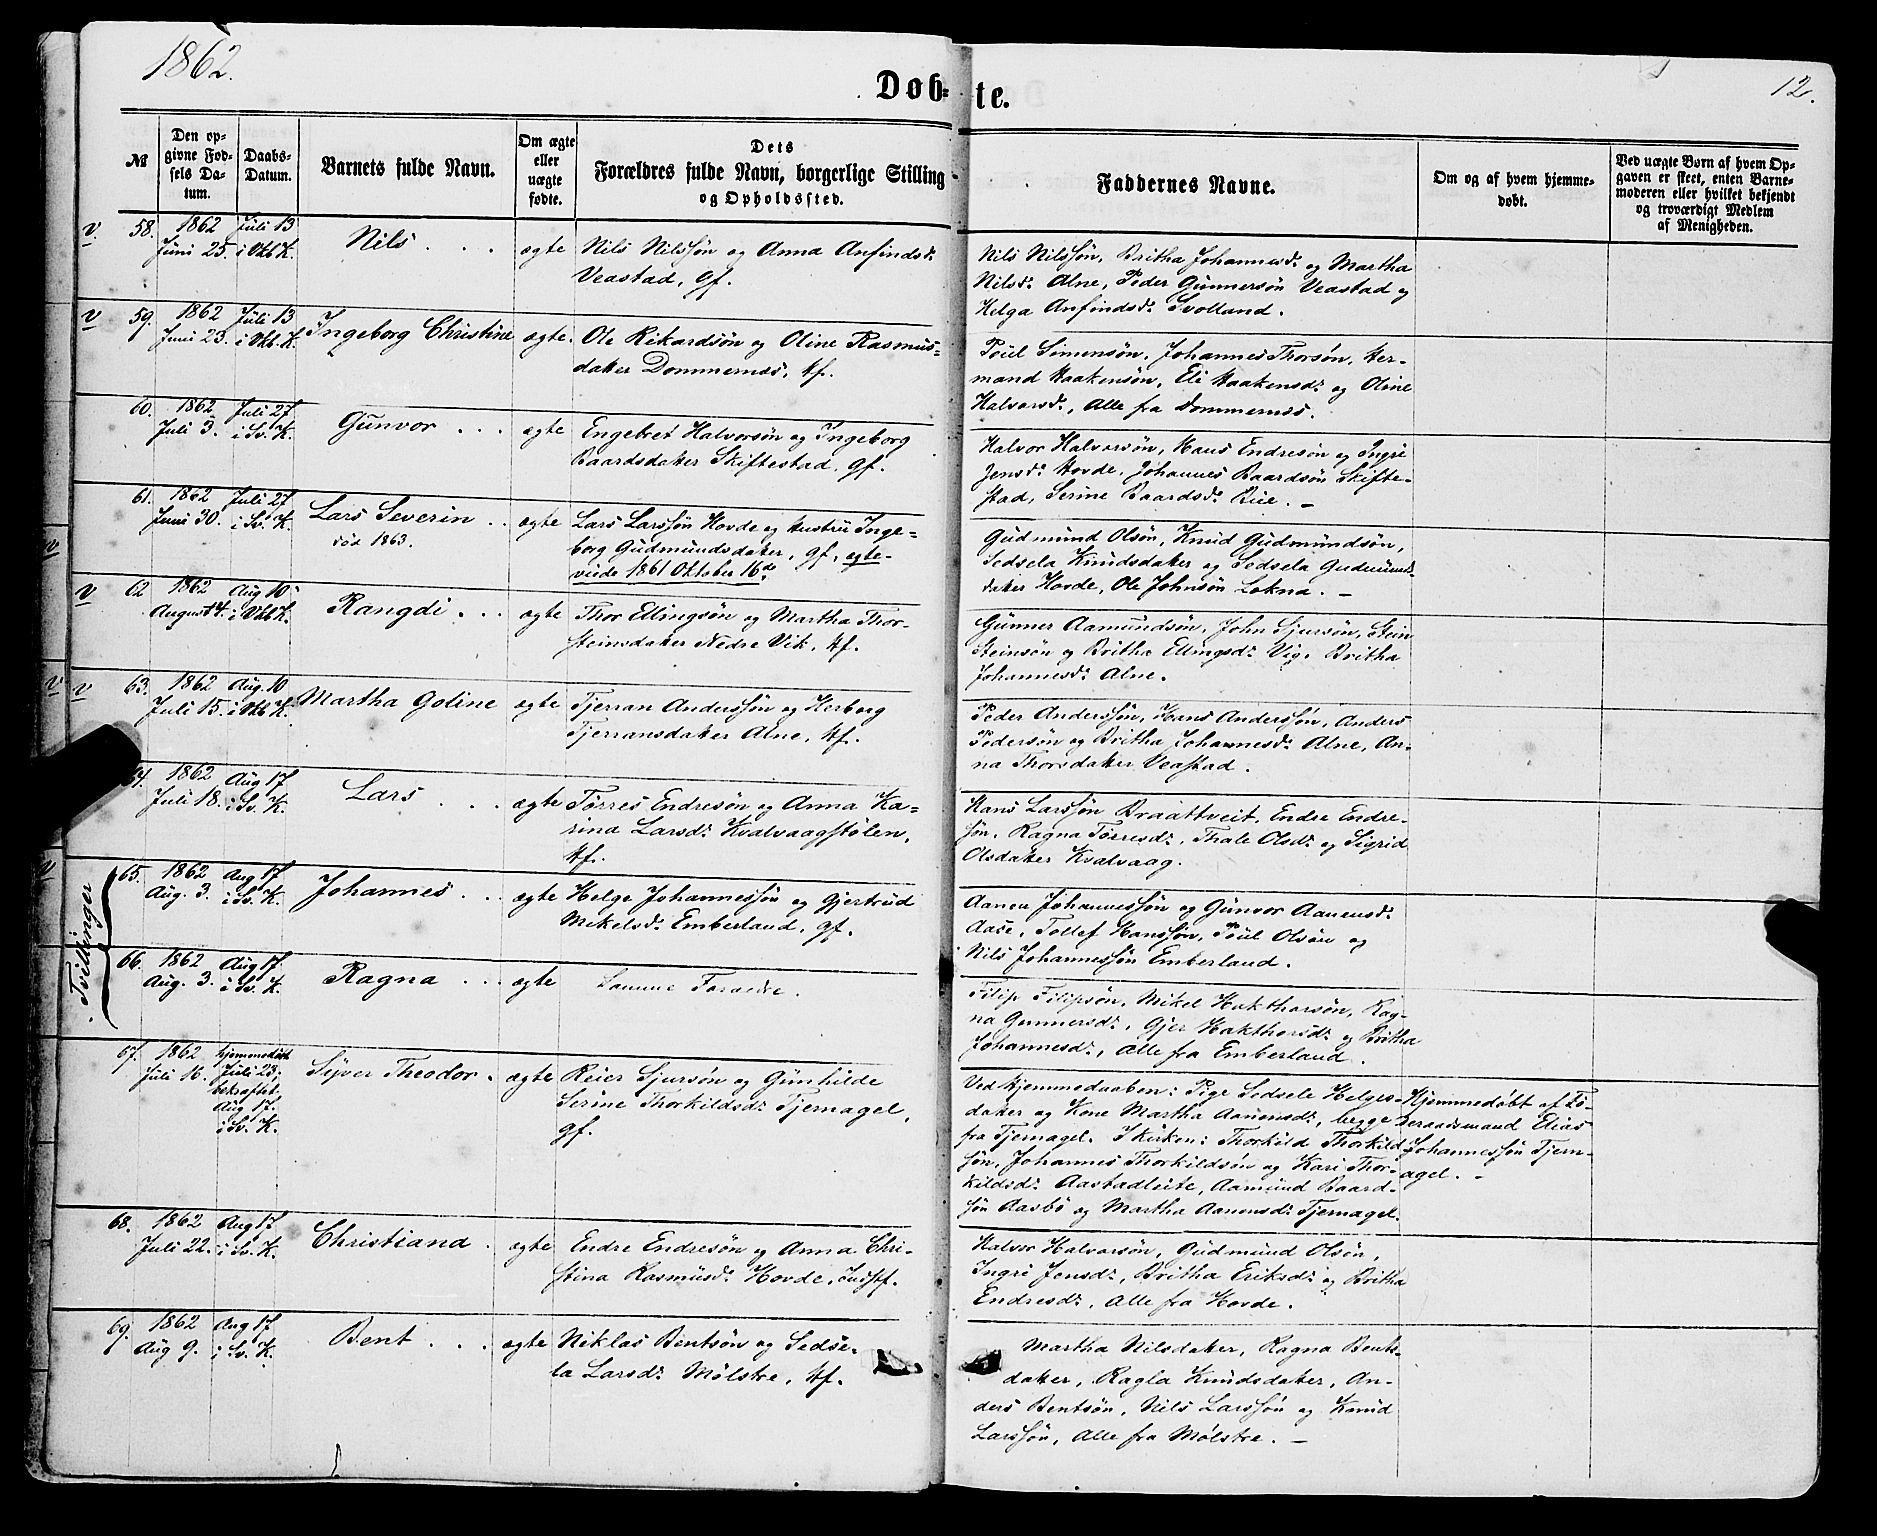 1862.
Døb-
te.
12.
№
Den op-
givne Fød-
sels Da-
tum.
Daabs-
Datum.
Barnets fulde Navn.
Om ægte
eller
uægte
fødte.
Dets
Forældres fulde Navn, borgerlige Stilling
og Opholdssted.
Faddernes Navne.
Om og af hvem hjemme-
døbt.
Ved uægte Børn af hvem Op-
gaven er skeet, enten Barne-
moderen eller hvilket bekjendt
og troværdigt Medlem
af Menigheden.
v
58.
1862
Juni 25.
Juli 13
i Vkb K.
Nils
ægte
Nils Nilssøn og Anna Anfindsd:
Veastad, gf.
Nils Nilssøn, Britha Johannesd: og Martha
Nilsd: Alne, Peder Gunnersøn Veastad og
Helga Anfindsd: Svolland.
v
59.
1862
Juni 23.
Juli 13
i Vkb. K.
Ingeborg Christine
ægte.
Ole Rikardsøn og Oline Rasmus-
datter Dommernes, hf.
Poul Simonsøn, Johannes Thorsøn, Her-
mand Haakensøn, Eli Haakensd: og Oline
Halvorsd:, Alle fra Dommernes.
60.
1862
Juli 3.
Juli 27
i Sv. K.
Gunvor
ægte
Engebret Halvorsøn og Ingeborg
Baardsdatter Skiftestad, gf.
Halvor Halvorsøn, Hans Endresøn og Ingri
Jensd: Hovde, Johannes Baardsøn Skifte-
stad, Serine Baardsd: Bue. -
61.
1862
Juni 30.
Juli 27
i Sv. K.
Lars Severin
død 1863.
ægte
Lars Larssøn Hovde og Hustru Inge-
borg Gudmundsdatter, gf, egte-
viede 1861 Oktober 16de.
Gudmund Olsøn, Knud Gudmundsøn,
Sedsela Knudsdatter og Sedsela Gudmunds-
datter Hovde, Ole Johnsøn Lokna. -
v
62
1862
August 4.
Aug 10
i Vkb K.
Rangdi
ægte
Thor Ellingsøn og Martha Thor-
steinsdatter Nedre Vik, hf.
Gunner Aamundsøn, John Sjursøn, Stein
Steinsøn og Britha Ellingsd: Vig, Britha
Johannesd: Alne.
v
63.
1862
Juli 15.
Aug. 10
i Vkb K.
Martha Goline
ægte
Tjerran Anderssøn og Herborg
Tjerransdatter Alne, hf.
Peder Anderssøn, Hans Anderssøn, Anders
Pedersøn og Britha Johannesd: Alne, An-
na Thorsdatter Veastad.
64.
1862
Juli 18.
Aug 17
i Sv. K.
Lars
ægte
Tørres Endresøn og Anna Ka-
rina Larsd: Kvalvaagstølen,
hf.
Hans Larssøn Braattveit, Endre Endre-
søn, Ragna Tørresd:, Thale Olsd: og Sigrid
Olsdatter Kvalvaag.
Tvillinger
65.
1862
Aug. 3.
Aug 17
i Sv. K.
Johannes
ægte
Helge Johannessøn og Gjertrud
Mikelsd: Emberland, gf.
Aanen Johannessøn og Gunvor Aanensd:
Aase, Tollef Hanssøn, Poul Olsøn og
Nils Johannessøn Emberland.
66.
1862
Aug. 3.
Aug 17
i Sv. K.
Ragna
ægte
Samme Forældre.
Filip Filipsøn, Mikel Hakthorsøn, Rag-
na Gunnersd:, Gjer Hakthorsd: og Britha
Johannesd:, Alle fra Emberland.
67.
1862
Juli 16.
hjemmedøbt
Juli 23,
bekræftet
Aug 17.
i Sv. K.
Sijver Theodor
ægte
Reier Sjursøn og Gunhilde
Serine Thorkildsd: Tjernagel,
gf.
Ved Hjemmedaaben: Pige Sedsele Helges-
datter og Kone Martha Aanensd:, begge
fra Tjernagel. I Kirken: Thorkild Thorkild-
søn, Johannes Thorkildsøn og Kari Thor-
kildsd: Aastadleite, Aamund Baard-
søn Aasbø og Martha Aanensd: Tjernagel.
Hjemmedøbt af Fø-
deraadsmand Elias
Johannessøn Tjern-
agel. -
68.
1862
Juli 22.
Aug 17
i Sv. K.
Christiand
ægte
Endre Endresøn og Anna Chri-
stina Rasmusd: Hovde, Indstf.
Halvor Halvorsøn, Gudmund Olsøn,
Ingri Jensd:, Britha Eriksd: og Britha
Endresd:, Alle fra Hovde.
69.
1862
Aug 9.
Aug 17
i Sv. K.
Bent
ægte
Niklas Bentsøn og Sedse-
la Larsd: Mølstre, hf.
Martha Nilsdatter, Ragna Bents-
datter, Ragla Knudsdatter, An-
ders Bentsøn, Nils Larssøn og Knud
Larssøn, Alle fra Mølstre. -